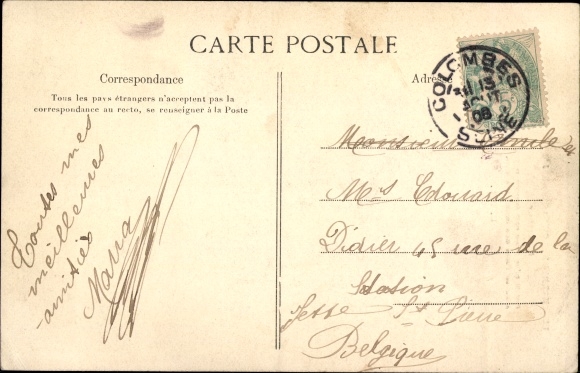 CARTE POSTALE
Correspondance
Tous les pays étrangers n'acceptent pas la
correspondance au recto, se renseigner à la Poste
Toutes mes
meilleures
amitiés
Maria
Adresse
COLOMBES
15
AOUT
06
SEINE
Monsieur Emile
Mr Edouard
Didier 45 rue de la
Station
Jette St Pierre
Belgique